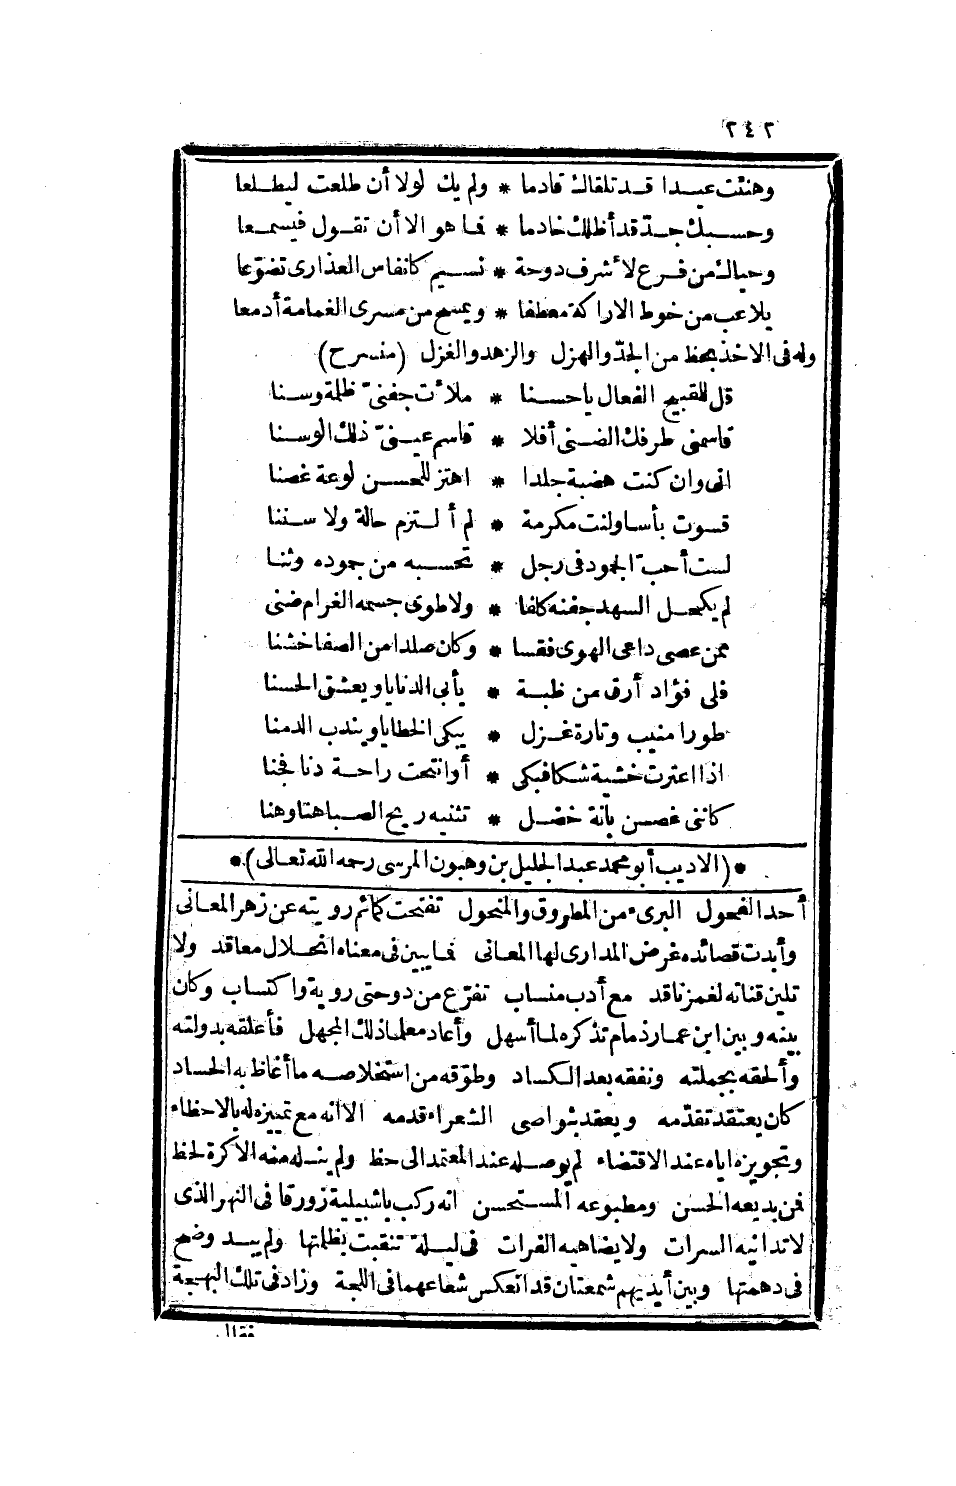 ٢٤٢
وهنئت عيدا قد تلقاك قادما * ولم يك لولا أن طلعت ليطلعا
وحسبك جدّ قد أظلك خادما * فما هو الا أن تقول فيسمعا
وحياك من فرع لأشرف دوحة * نسيم كانفاس العذارى تضوّعا
يلاعب من خوط الاراكة معطفا * ويمسح من مسرى الغمامة أدمعا
وله فى الاخذ بحظ من الجدّ والهزل والزهد والغزل (منسرح)
قل للقبيح الفعال ياحسنا * ملأت جفنىّ ظلمة وسنا
قاسمنى طرفك الضنى أفلا * قاسم عينىّ ذلك الوسنا
انى وان كنت هضبة جلدا * اهتز للحسن لوعة غصنا
قسوت بأسا ولنت مكرمة * لم ألتزم حالة ولا سننا
لست أحبّ الجمود فى رجل * تحسبه من جموده وثنا
لم يكحل السهد جفنه كلفا * ولا طوى جسمه الغرام ضنى
ممن عصى داعى الهوى فقسا * وكان صلدا من الصفا خشنا
فلى فؤاد أرق من ظبة * يأبى الدنايا ويعشق الحسنا
طورا منيب وتارة غزل * يبكى الخطايا ويندب الدمنا
اذا اعترت خشية شكا فبكى * أو انتحت راحة دنا فجنا
كاننى غصن بانة خضل * تثنيه ريح الصبا هنا وهنا
*(الاديب أبو محمد عبد الجليل بن وهبون المرسى رحمه الله تعالى)*
أحد الفحول البرىء من المطروق والمنحول تفتحت كمائم رويته عن زهر المعانى
وأبدت قصائده غرض المدارى لها المعانى فما يبين فى معناه انحلال معاقد ولا
تلين قناته لغمز ناقد مع أدب منساب تفرّع من دوحتى روية واكتساب وكان
بينه وبين ابن عمار ذمام تذكره لما أسهل وأعاد معلما ذلك المجهل فأعلقه بدولته
وألحقه بجملته ونفقه بعد الكساد وطوّقه من استخلاصه ما أغاظ به الحساد
كان يعتقد تقدّمه ويعقد بنواصى الشعراء قدمه الا انه مع تمييزه له بالاحظاء
وتجويزه اياه عند الاقتضاء لم يوصله عند المعتمد الى حظ ولم ينله منه الا كرة لحظ
فمن بديعه الحسن ومطبوعه المستحسن انه ركب باشبيلية زورقا فى النهر الذى
لا تدانيه السراة ولا يضاهيه الفرات فى ليلة تنقبت بظلمتها ولم يبد وضح
فى دهمتها وبين أيديهم شمعتان قد انعكس شعاعهما فى اللجة وزاد فى تلك البهجة
فقال